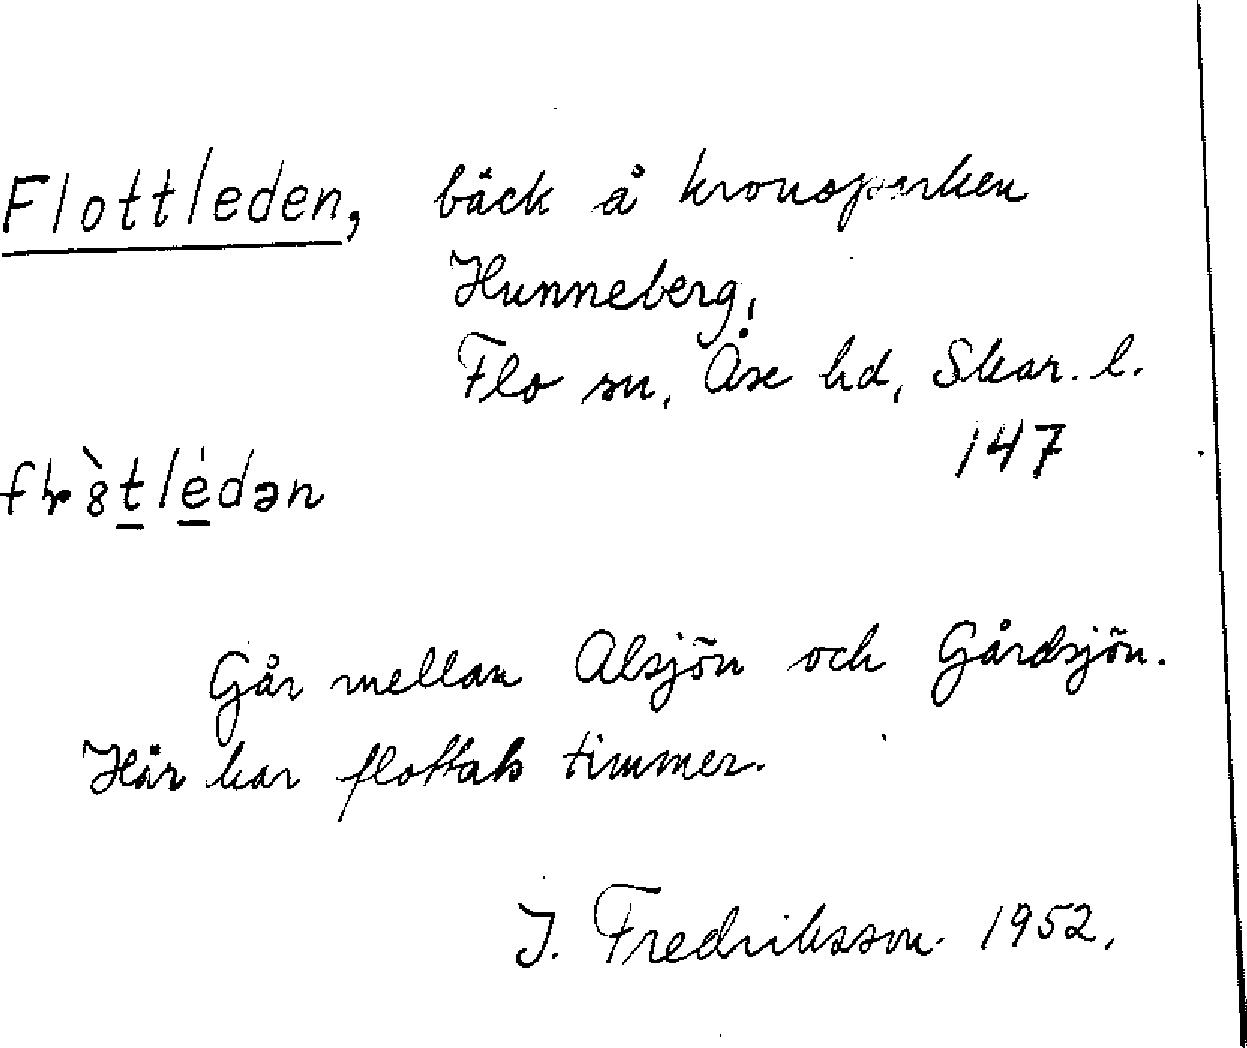 Flottleden, bäck å kronoparken
Hunneberg,
Flo sn, Åse hd, Skar. l.
147
Går mellan Alsjön och Gårdsjön.
Här har flottats timmer.
J. Fredriksson 1952.